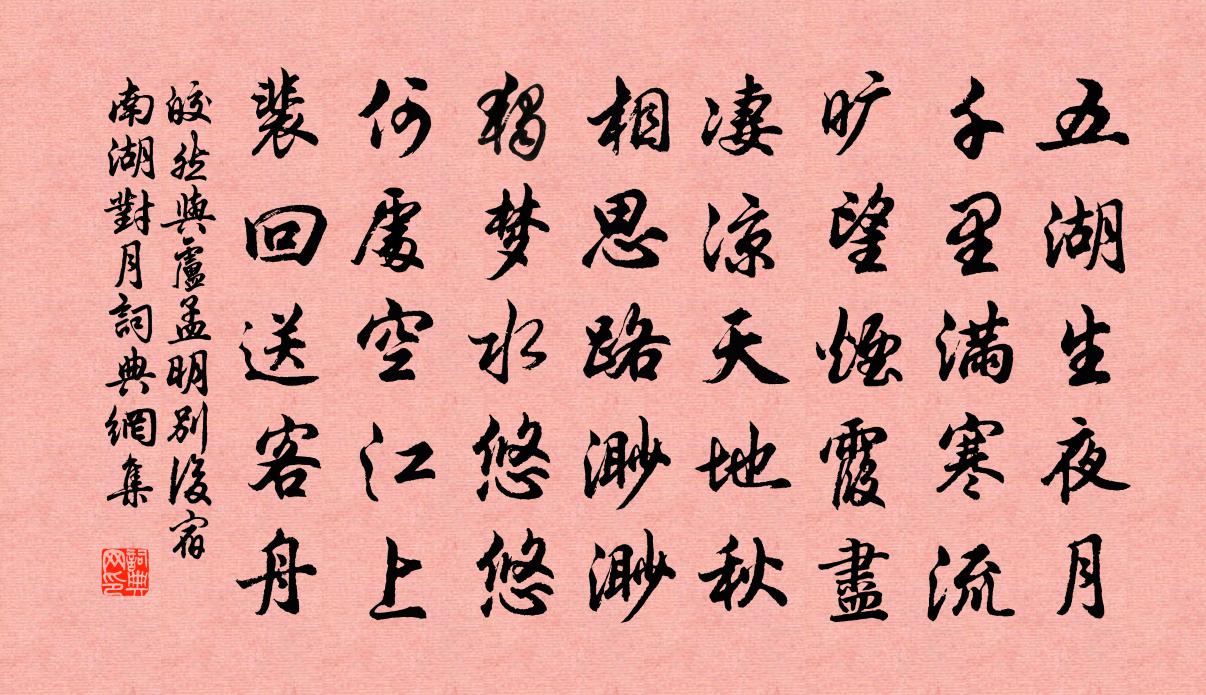 五湖生夜月
千里满寒流
旷望煙霞盡
凄凉天地秋
相思路渺渺
獨梦水悠悠
何處空江上
裴回送客舟
皎然與盧孟明别後宿
南湖對月詞典網集
詞典網印